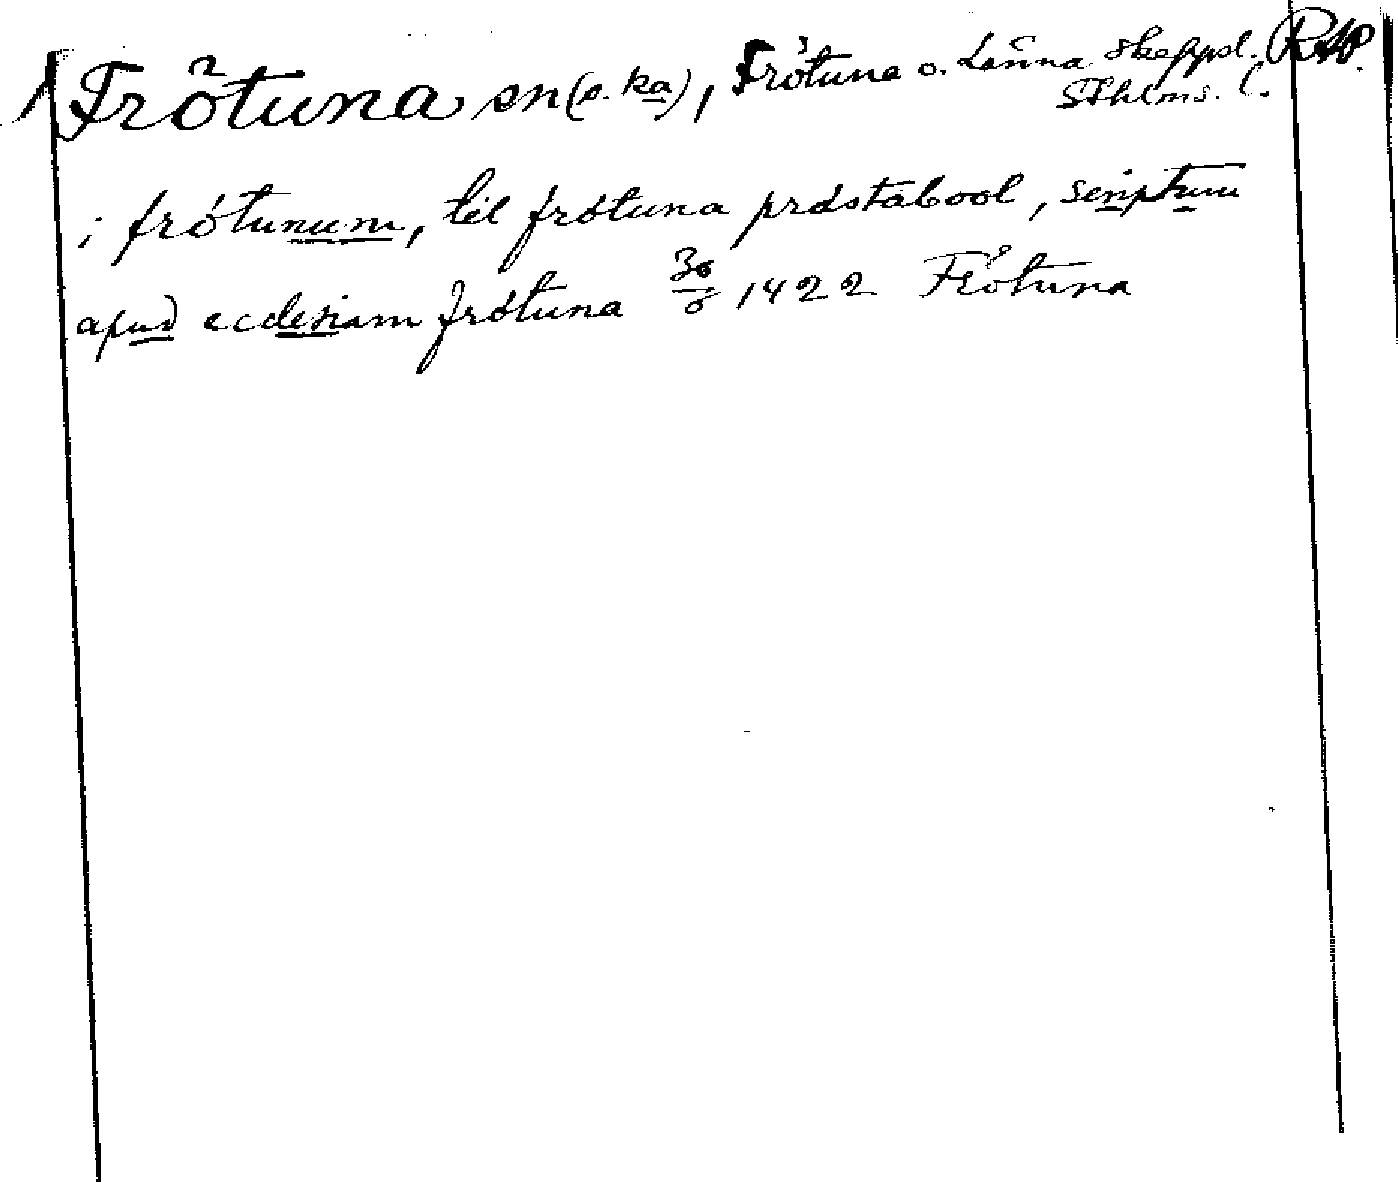 Frötuna sn (o. ka), Frötuna o. Länna skeppsl. RAP.
Sthlms. l.
i frótunum, til frótuna prdstabool, scriptum
apud ecclesiam frótuna 30/6 1422 Frötuna